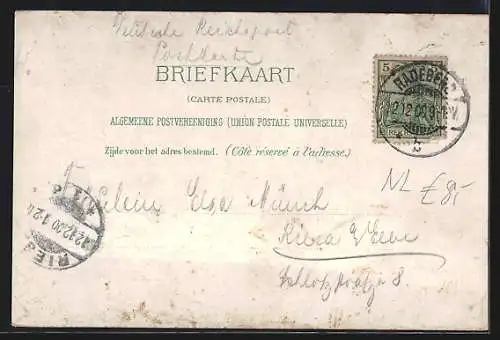 Deutsche Reichspost
Postkarte
BRIEFKAART
(CARTE POSTALE)
ALGEMEENE POSTVEREENIGING (UNION POSTALE UNIVERSELLE)
Zijde voor het adres bestemd. (Côté réservé à l'adresse.)
5
RADEBERG
Fräulein Elsa Münch
Riesa a/Elbe
Schloßstraße 8.
NL £8,-
RIESA
12.12.00